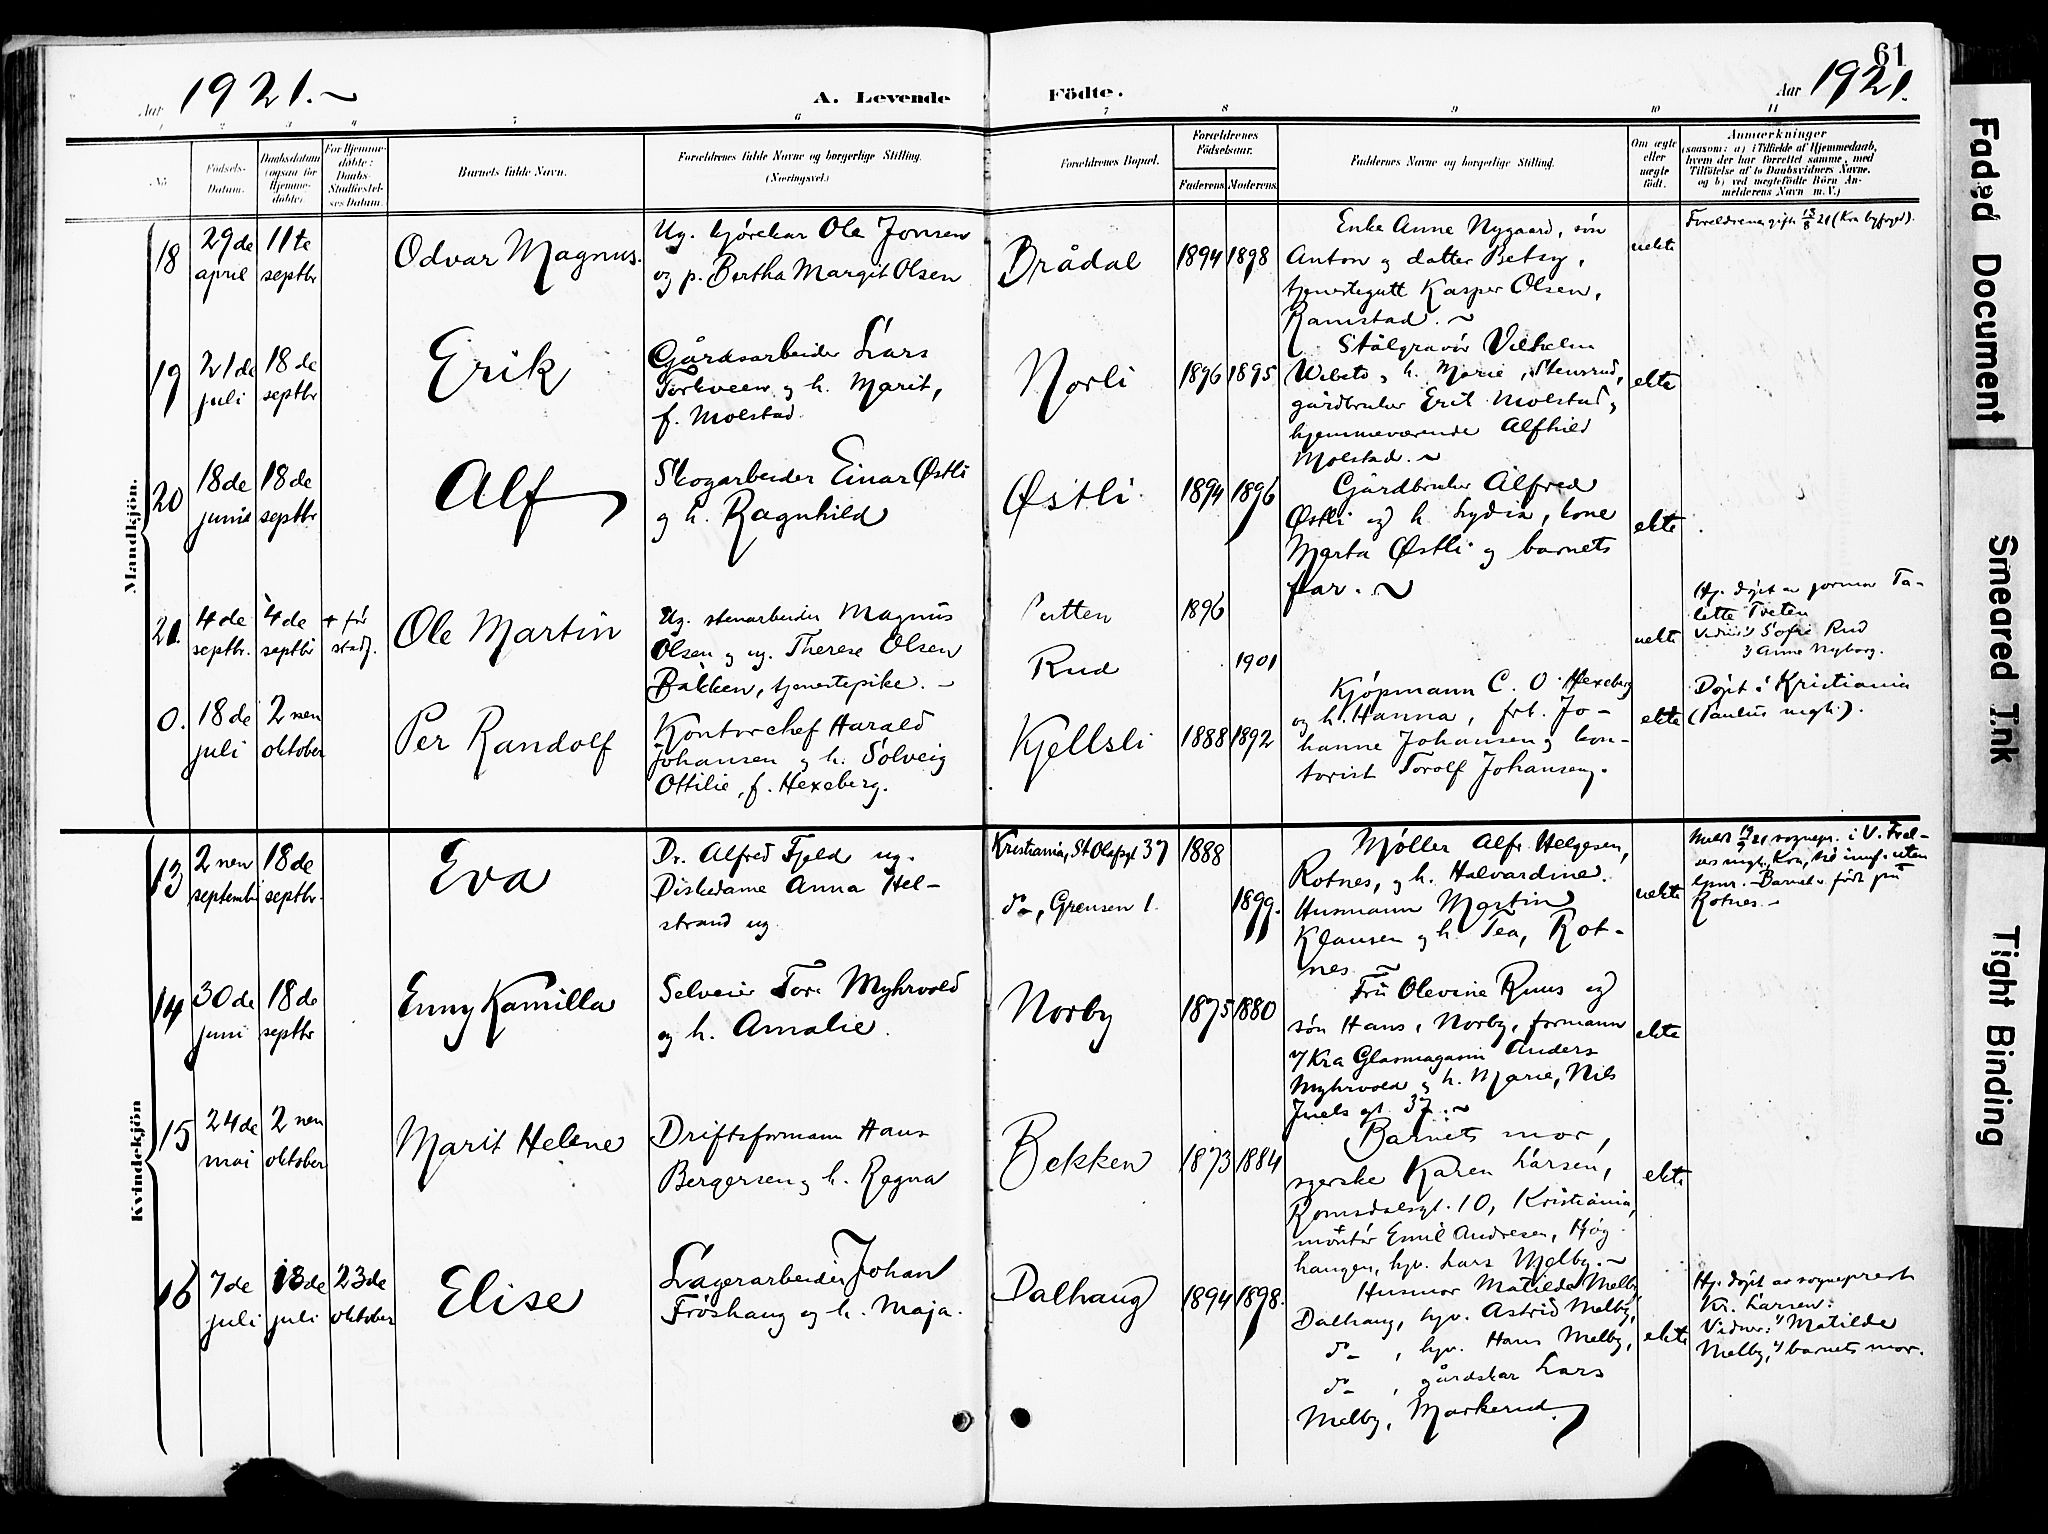 61
Aar 1921.~
A. Levende
Födte.
Aar 1921.
1 2 3 4 5 6 7 8 9 10 11
No
Fødsels-
Datum.
Daabsdatum
(ogsaa for
Hjemme-
døbte).
For Hjemme-
døbte:
Daabs-
Stadfæstel-
ses Datum.
Barnets fulde Navn.
Forældrenes fulde Navne og borgerlige Stilling.
(Næringsvei.)
Forældrenes Bopæl.
Forældrenes
Fødselsaar.
Faderens Moderens
Faddernes Navne og borgerlige Stilling.
Om ægte
eller
uægte
født.
Anmærkninger
(saasom: a) i Tilfælde af Hjemmedaab,
hvem der har forrettet samme, med
Tilføielse af to Daabsvidners Navne.
og b) ved uægtefødte Börn An-
melderens Navn m. V.)
Mandkjön.
18
29de
april
11te
septbr
Odvar Magnus.
Ug. kjørekar Ole Jonsen
og p. Bertha Margit Olsen
Brådal
1894 1898
Enke Anne Nygaard, søn
Anton og datter Betsy,
tjenestegutt Kasper Olsen,
Ramstad. ~
uekte
Foreldrene gift 13/8 21 (Kra byfogd).
19
21de
juli
18de
septbr
Erik
Gårdsarbeider Lars
Torkveen og h. Marit,
f. Molstad.
Norli
1896 1895
Stålgravør Vilhelm
Wibeto og h. Marie, Stensrud,
gårdbruker Erik Molstad,
hjemmeværende Alfhild
Molstad. ~
ekte
20
18de
juni
18de
septbr
Alf
Skogarbeider Einar Østli
og h. Ragnhild
Østli.
1894 1896
Gårdbruker Alfred
Østli og h. Lydia, kone
Marta Østli og barnets
far. ~
ekte
21.
4de
septbr.
4de
septbr
+ før
stadf.
Ole Martin
Ug. stenarbeider Magnus
Olsen og ug. Therese Olsen
Bakken, tjenestepike. -
Putten
Rud
1896
1901
uekte
Hj. døpt av jormor Ta-
lette Tveten
Vidner: 1) Sofie Rud
2) Anne Nyborg.
0.
18de
juli
2nen
oktober
Per Randolf
Kontorchef Harald
Johansen og h. Solveig
Ottilie, f. Hexeberg.
Kjellsli
1888 1892
Kjøpmann C. O. Hexeberg
og h. Hanna, frk. Jo-
hanne Johansen og kon-
torist Torolf Johansen.
ekte
Døpt i Kristiania
(Paulus mgh.).
Kvindekjön
13
2nen
septembr
18de
septbr.
Eva
Dr. Alfred Fjeld ug.
Diskedame Anna Hel-
strand ug.
Kristiania, St Olafsgt 37
do, Grensen 1.
1888
1899.
Møller Alfr. Helgesen,
Rotnes, og h. Halvardine.
Husmann Martin
Klausen og h. Tea, Rot-
nes ~
uekte
Meldt 19/9 21 sognepr. i V. Frel-
sers mgh, Kra,
Barnet født på
Rotnes. -
14
30de
juni
18de
septbr
Enny Kamilla
Selveier Tor Myhrvold
og h. Amalie.
Norby
1875 1880
Fru Olevine Ruus og
søn Hans, Norby, formann
v/ Kra Glasmagasin Anders
Myhrvold og h. Marie, Nils
Juels gt. 37. ~
ekte
15
24de
mai
2nen
oktober
Marit Helene
Driftsformann Hans
Bergersen og h. Ragna
Bekken
1873 1884
Barnets mor,
syerske Karen Larsen,
Romsdalsgt. 10, Kristiania,
montør Emil Andresen, Høg-
haugen, hyv. Lars Melby. ~
ekte
16
7de
juli
13de
juli
23de
oktober
Elise
Lagerarbeider Johan
Frøshaug og h. Maja.
Dalhaug
1894 1898.
Husmor Matilde Melby,
Dalhaug, hyv. Astrid Melby,
do, hyv. Hans Melby,
do, gårdskar Lars
Melby, Markerud.
ekte
Hj. døpt av sogneprest
Kr. Larsen:
Vidner: 1) Matilde
Melby, 2) barnets mor.
Faded Document
Smeared Ink
Tight Binding